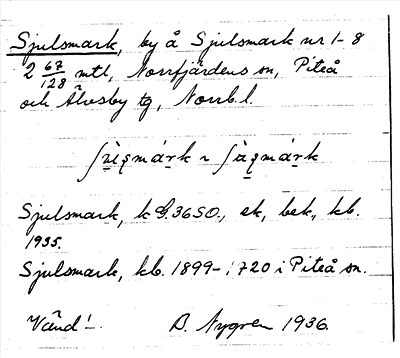 Sjulsmark, by å Sjulsmark nr 1-8
2 67/128 mtl, Norrfjärdens sn, Piteå
och Älvsby tg, Norrb. l.
Sjulsmark, k G. 36 SO., ek, bek., kb.
1935.
Sjulsmark, kb. 1899-1720 i Piteå sn.
Vänd! B. Nygren 1936